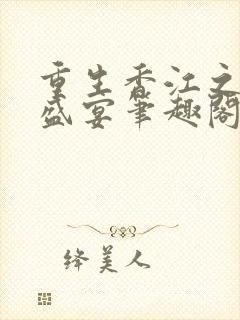 重生香江之
盛宴筆趣閣
绛美人